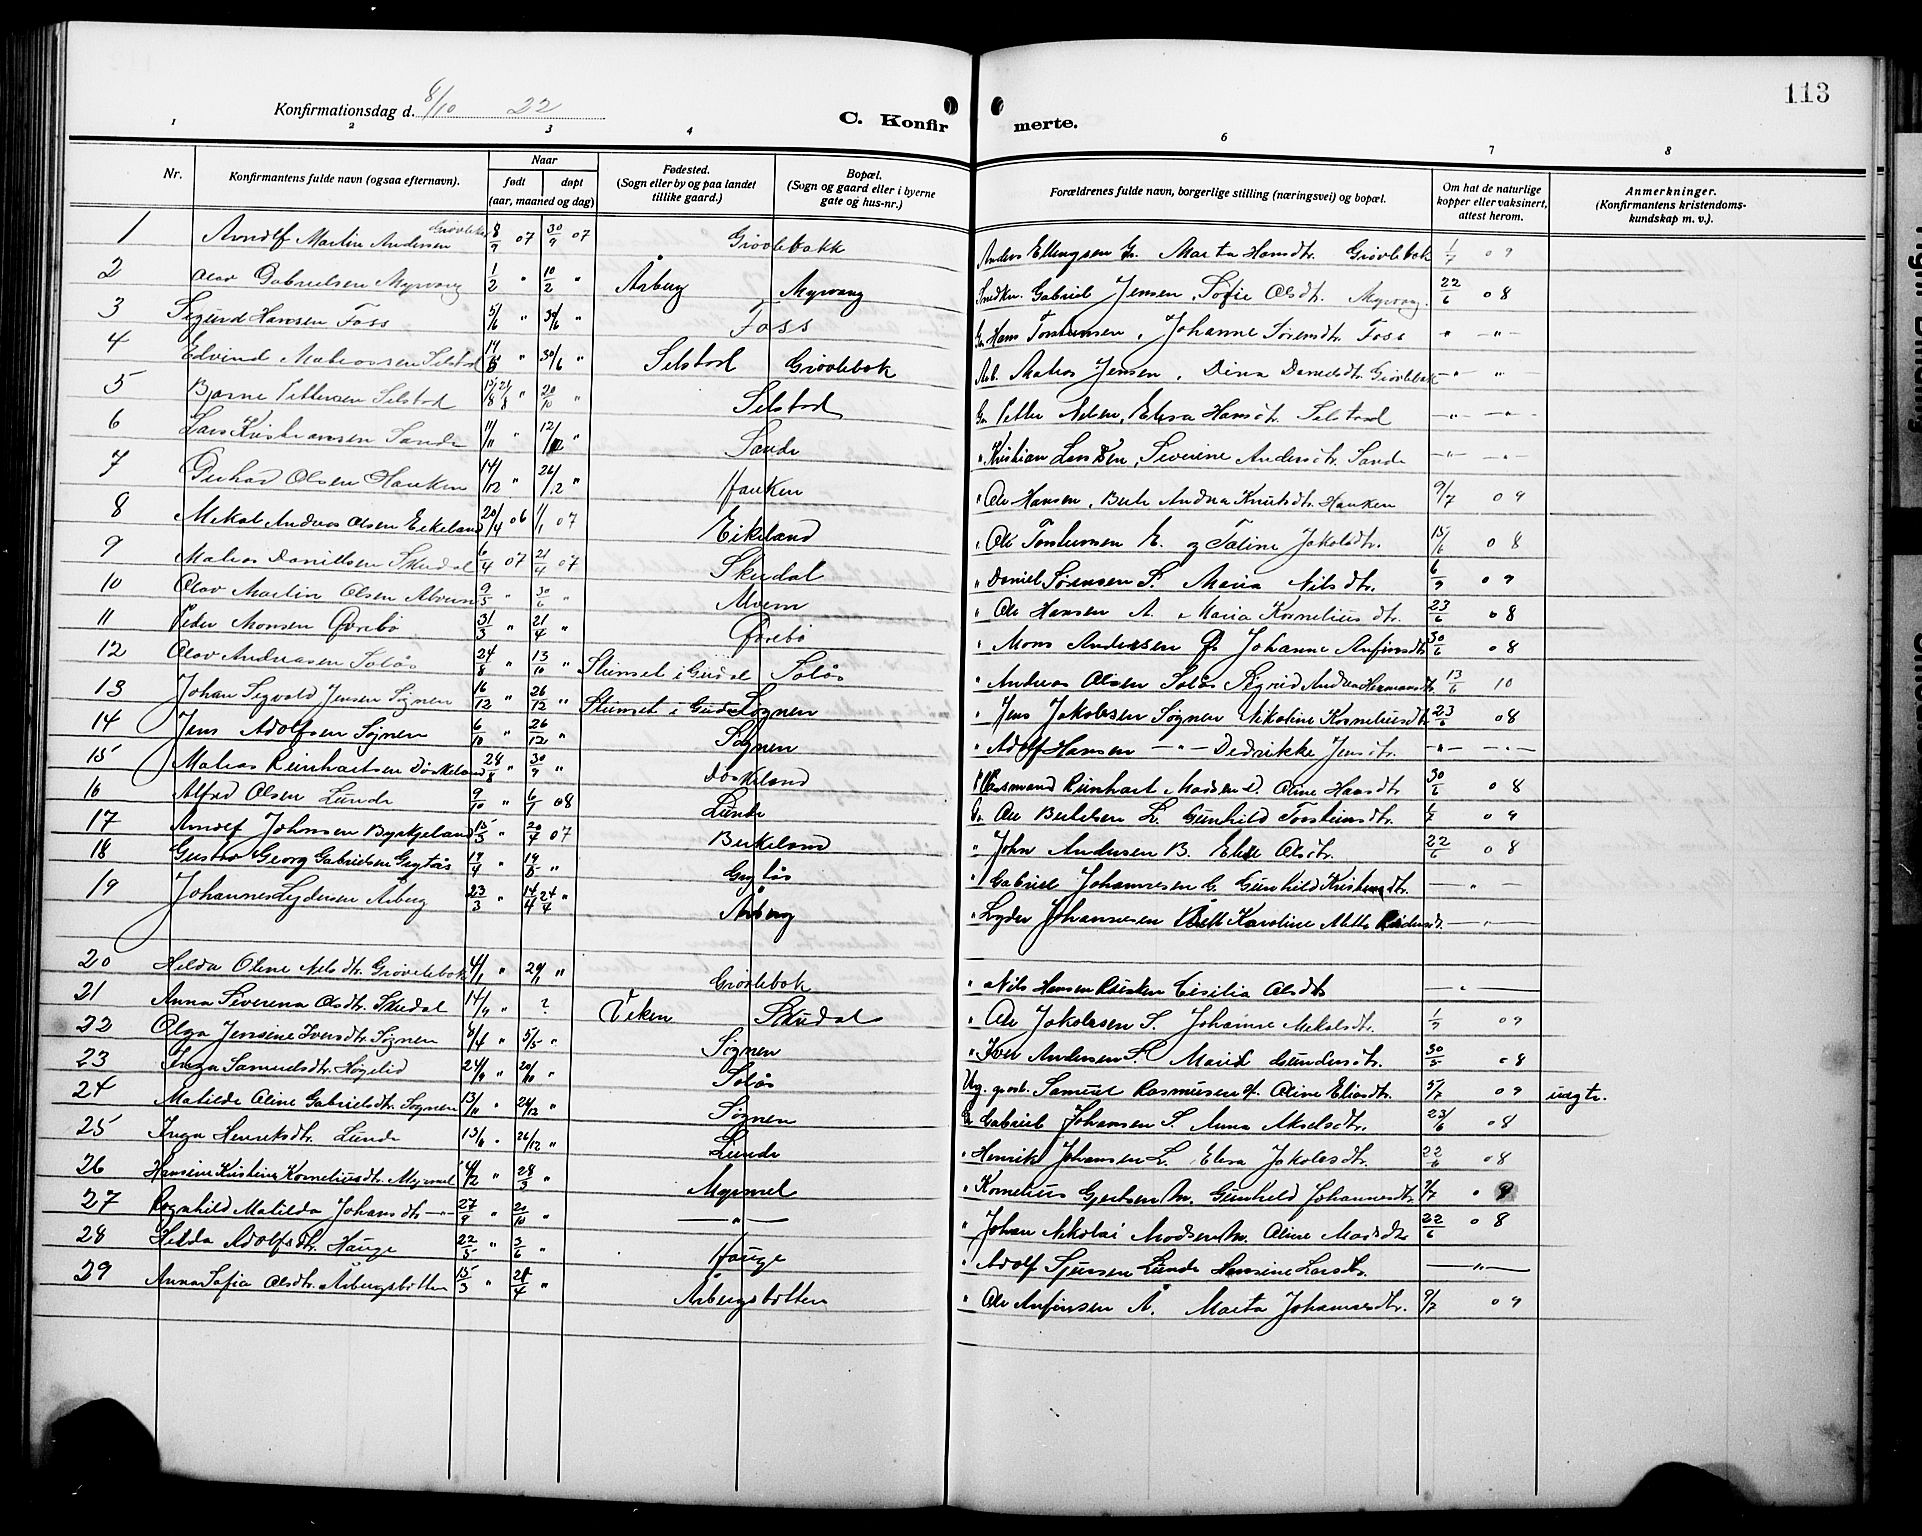 113
Konfirmationsdag d. 8/10 22
C. Konfirmerte.
1 2 3 4 6 7 8
Nr. Konfirmantens fulde navn (ogsaa efternavn). Naar født døpt (aar, maaned og dag) Fødested. (Sogn eller by og paa landet tillike gaard.) Bopæl. (Sogn og gaard eller i byerne gate og hus-nr.) Forældrenes fulde navn, borgerlige stilling (næringsvei) og bopæl. Om hat de naturlige kopper eller vaksinert, attest herom. Anmerkninger. (Konfirmantens kristendomskundskap m. v.).
1 Arnolf Martin Andersen Grøvlebak 8/9 07 30/9 07 Grøvlebakk Anders Ellingsen G. Marta Hansdtr. Grøvlebak 1/7 09
2 Olav Gabrielsen Myrvang 1/2 " 10/2 " Årberg Myrvang Snedker Gabriel Jensen, Sofie Olsdtr. Myrvang. 22/6 08
3 Sigurd Hansen Foss 5/6 " 30/6 " Foss Hans Torstensen, Johanne Sørensdtr. Foss " -"-
4 Edvind Matiassen Selstad " 30/6 " Selstad Grøvlebak Arb. Matias Jensen, Dina Danielsdtr. Grøvlebak -"- "
5 Bjarne Pettersen Selstad " 20/10 " Selstad Petter Nilsen, Elesa Hansdtr. Selstad -"- -"-
6 Lars Kristiansen Sande 11/11 " 12/12 " Sande " Kristian Larsen, Severine Andersdtr. Sande -"- -"-
7 Gerhard Olsen Hauken 14/12 " 26/12 " Hauken " Ole Hansen, Berte Andrea Knutsdtr. Hauken 9/7 09
8 Mikal Andreas Olsen Eikeland 20/4 06 1/1 07 Eikeland " Ole Torstensen E. og Taline Jakobsdtr. 15/6 08
9 Matias Danielsen Skudal 6/4 07 21/4 07 Skudal " Daniel Sørensen S. Maria Nilsdtr. 6/9 09
10 Olav Martin Olsen Alvern 9/5 " 30/6 " Alvern " Ole Hansen A. Maria Korneliusdtr. 23/6 08
11 Peder Monsen Øvrebø 31/3 " 21/4 " Øvrebø " Mons Andersen Ø. Johanne Anfinsdtr. 30/6 08
12 Olav Andreasen Solås 24/8 " 13/10 " Stinset i Guldal Solås " Andreas Olsen Solås Sigrid Andrea Hermansdtr. 13/6 10
13 Johan Sigvald Jensen Sognen 16/12 " 26/12 " Stenset i Guldal Sognen " Jens Jakobsen Sognen Nikoline Korneliusdtr. 23/6 08
14 Jens Adolfsen Sognen 6/10 " 26/12 " Sognen " Adolf Hansen -"- Dedrikke Jensdtr. -"- -"-
15 Matias Reinhartsen Döskeland 28/8 " 30/9 " Döskeland Rasmund Reinhart Madsen D. Oline Hansdtr. 30/6 08
16 Alfred Olsen Lunde 9/10 " 6/1 08 Lunde Ole Bertelsen L. Gunhild Torsteinsdtr. 09
17 Arnolf Johnsen Byrkjeland 15/3 " 20/4 07 Birkeland " John Andersen B. Elise Olsdtr. 22/6 08
18 Gustav Georg Gabrielsen Grytås " " Grytås " Gabriel Johannesen G. Gunhild Kristensdtr. — " —
19 Johannes Lydersen Årberg 23/3 " 14/4 24/4 " Årberg " Lyder Johannesen Karoline Mette — " —
20 Hilda Oline Nilsdtr. Grøvlebak 4/1 " " Grøvlebak " Nils Hansen Cisilia Olsdtr — " —
21 Anna Severena Olsdtr. Skudal " ? Viken Skudal " Ole Jakobsen S. Johanne Mikalsdtr. 09
22 Olga Jensine Iversdtr. Sognen 8/4 " 5/5 " Sognen " Iver Andersen S. Marie Gundersdtr. 30/5 08
23 Inga Samuelsdtr. Høgelid 24/9 " 20/10 " Solås Samuel Rasmussen H. Oline Eliasdtr. 5/7 09 udgtr.
24 Matilde Oline Gabrielsdtr. Sognen 13/11 " 26/12 " Sognen Gabriel Johansen S. Anna Akselsdtr. 23/6 08
25 Inga Henriksdtr. Lunde " 26/12 " Lunde " Henrik Johansen L. Elesa Jakobsdtr. 22/6 08
26 Hansine Kristine Korneliusdtr. Myrmel " 28/3 " Myrmel " Kornelius Gjertsen M. Gunhild Johannesdtr. 9/7
27 Ragnhild Matilda Johansdtr -"- 27/9 " 20/10 " — " — " Johan Nikolai Madsen M. Oline Madsdtr. 22/6 08
28 Hilda Adolfsdtr. Hauge 22/5 " 3/6 " Hauge " Adolf Sjursen Lunde Hansine Larsdtr. — " —
29 Anna Sofia Olsdtr. Årbergsbotten 15/3 " 21/4 " Årbergsbotten " Ole Anfinsen Å. Marta Johannesdtr. 9/7 09